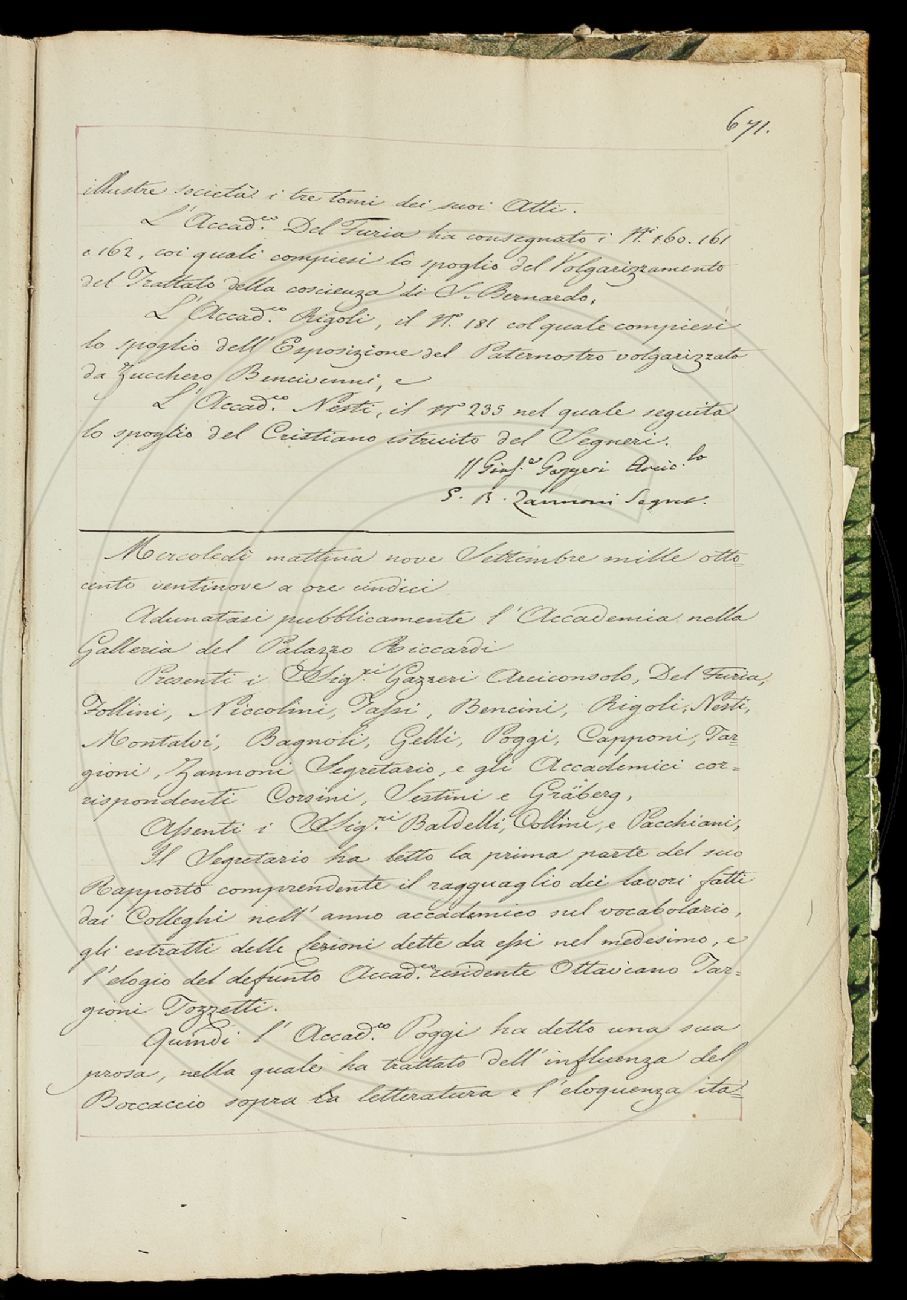 671.
illustre società i tre tomi dei suoi Atti.
L'Accad.co Del Furia ha consegnato i N.i 160. 161
e 162, coi quali compiesi lo spoglio del Volgarizzamento
del Trattato della coscienza di S. Bernardo,
L'Accad.co Rigoli, il N.o 181 col quale compiesi
lo spoglio dell'Esposizione del Paternostro volgarizzato
da Zucchero Bencivenni, e
L'Accad.co Nesti, il N.o 235 nel quale seguita
lo spoglio del Cristiano istruito del Segneri.
Gius.e Gazzeri Arcic.lo
G. B. Zannoni Segret.
Mercoledì mattina nove Settembre mille otto=
cento ventinove a ore undici
Adunatasi pubblicamente l'Accademia nella
Galleria del Palazzo Riccardi
Presenti i SSig.ri Gazzeri Arciconsolo, Del Furia,
Follini, Niccolini, Fassi, Bencini, Rigoli, Nesti,
Montalvi, Bagnoli, Gelli, Poggi, Capponi, Tar=
gioni, Zannoni Segretario, e gli Accademici cor=
rispondenti Corsini, Sestini e Gräberg,
Assenti i SSig.ri Baldelli, Collini, e Pacchiani,
Il Segretario ha letto la prima parte del suo
Rapporto comprendente il ragguaglio dei lavori fatti
dai Colleghi nell'anno accademico sul vocabolario,
gli estratti delle Lezioni dette da essi nel medesimo, e
l'elogio del defunto Accad.co residente Ottaviano Tar=
gioni Tozzetti.
Quindi l'Accad.co Poggi ha detto una sua
prosa, nella quale ha trattato dell'influenza del
Boccaccio sopra la letteratura e l'eloquenza ita=